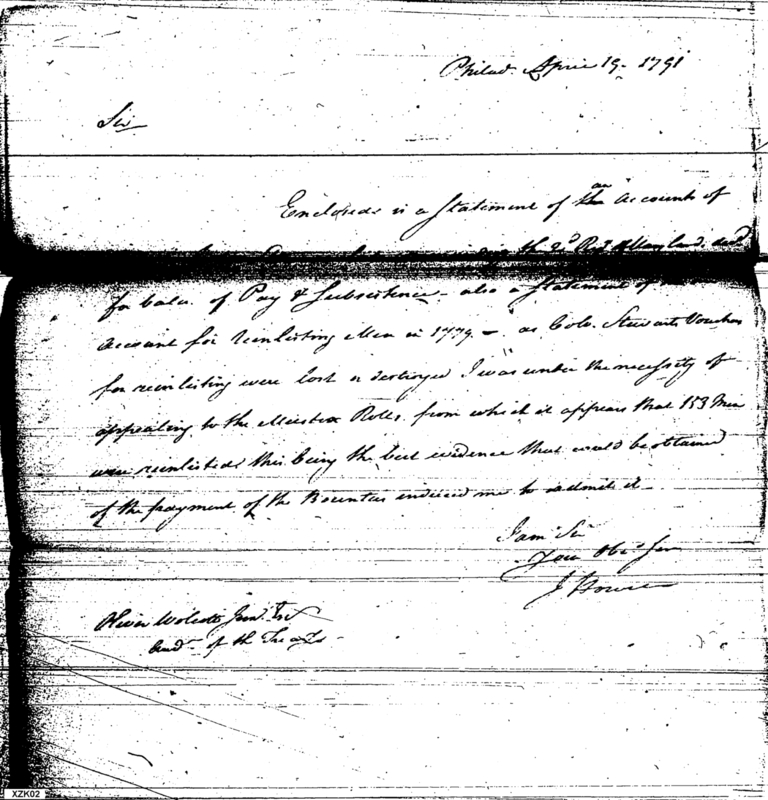 Philad. April 19. 1791
Sir
Enclosed is a Statement of an the accounts of
the 2d Regt. Maryland. decd
for bala. of Pay & Subsistence - also a Statement of
account for reinlisting Men in 1779 - as Colo. Stewarts Vouchers
for reinlisting were lost or destroyed I was under the necessity of
appealing to the Muster Rolls from which it appears that 153 Men
were reinlisted this being the best evidence that could be obtained
of the payment of the Bounties induced me to admit it
I am Sir
Your Obt. Ser
J Howell
Oliver Wolcott Junr. Esqr
Audr. of the Treasy
XZK02